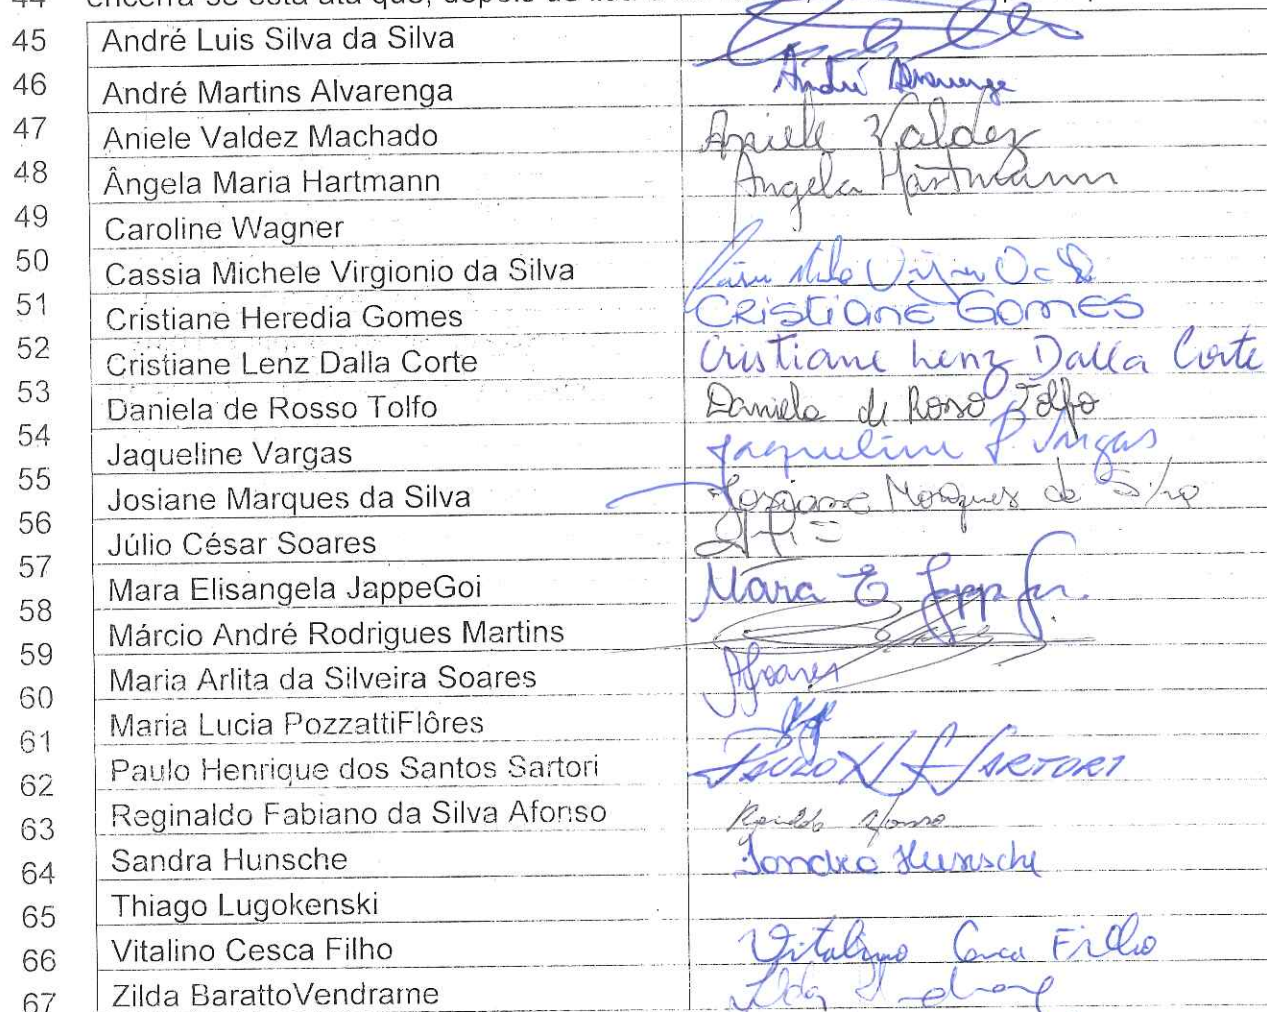 44
45 André Luis Silva da Silva
46 André Martins Alvarenga André Alvarenga
47 Aniele Valdez Machado Aniele Valdez
48 Ângela Maria Hartmann Angela Hartmann
49 Caroline Wagner
50 Cassia Michele Virgionio da Silva
51 Cristiane Heredia Gomes CRistiane Gomes
52 Cristiane Lenz Dalla Corte Cristiane Lenz Dalla Corte
53 Daniela de Rosso Tolfo Daniela de Roso Tolfo
54 Jaqueline Vargas Jaqueline P. Vargas
55 Josiane Marques da Silva Josiane Marques da Silva
56 Júlio César Soares
57 Mara Elisangela JappeGoi Mara E Jappe Goi
58 Márcio André Rodrigues Martins
59 Maria Arlita da Silveira Soares
60 Maria Lucia PozzattiFlôres
61 Paulo Henrique dos Santos Sartori PAULO H S SARTORI
62 Reginaldo Fabiano da Silva Afonso
63 Sandra Hunsche Sandra Hunsche
64 Thiago Lugokenski
65 Vitalino Cesca Filho Vitalino Cesca Filho
66 Zilda BarattoVendrame
67